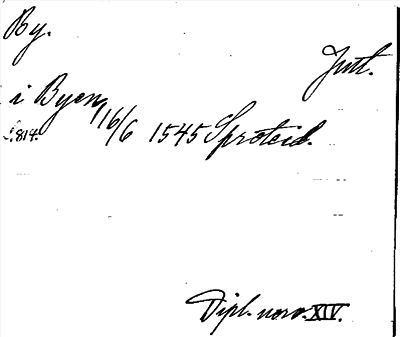 By.
Jutl.
i Byen, 16/6 1545 Sproteid.
S. 814.
Dipl. norv. XIV.